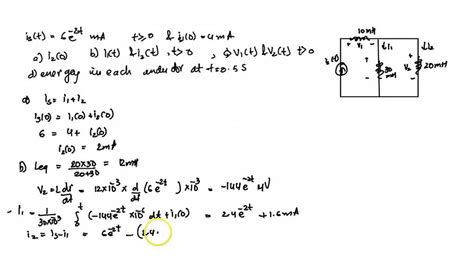 is(t) = 6e^-2t mA t≥0 & i1(0) = 4mA
a) i2(0) b) i1(t) & i2(t), t>0, c) V1(t) & V2(t) t>0
d) energy in each inductor at t=0.5s
a) is = i1+i2
is(0) = i1(0)+i2(0)
6 = 4+ i2(0)
i2(0) = 2mA
b) Leq = 20×30/20+30 = 12mH
V2 = L di/dt = 12×10^-3 × d/dt (6e^-2t) ×10^-3 = -144e^-2t μV
i1 = 1/30×10^-3 ∫0^t (-144e^-2t ×10^-6 dt + i1(0) = 2.4e^-2t + 1.6mA
i2 = is-i1 = 6e^-2t - (2.4
10mH
+ V1 -
↓i1
↓i2
is(t)
30
mH
V2
20mH